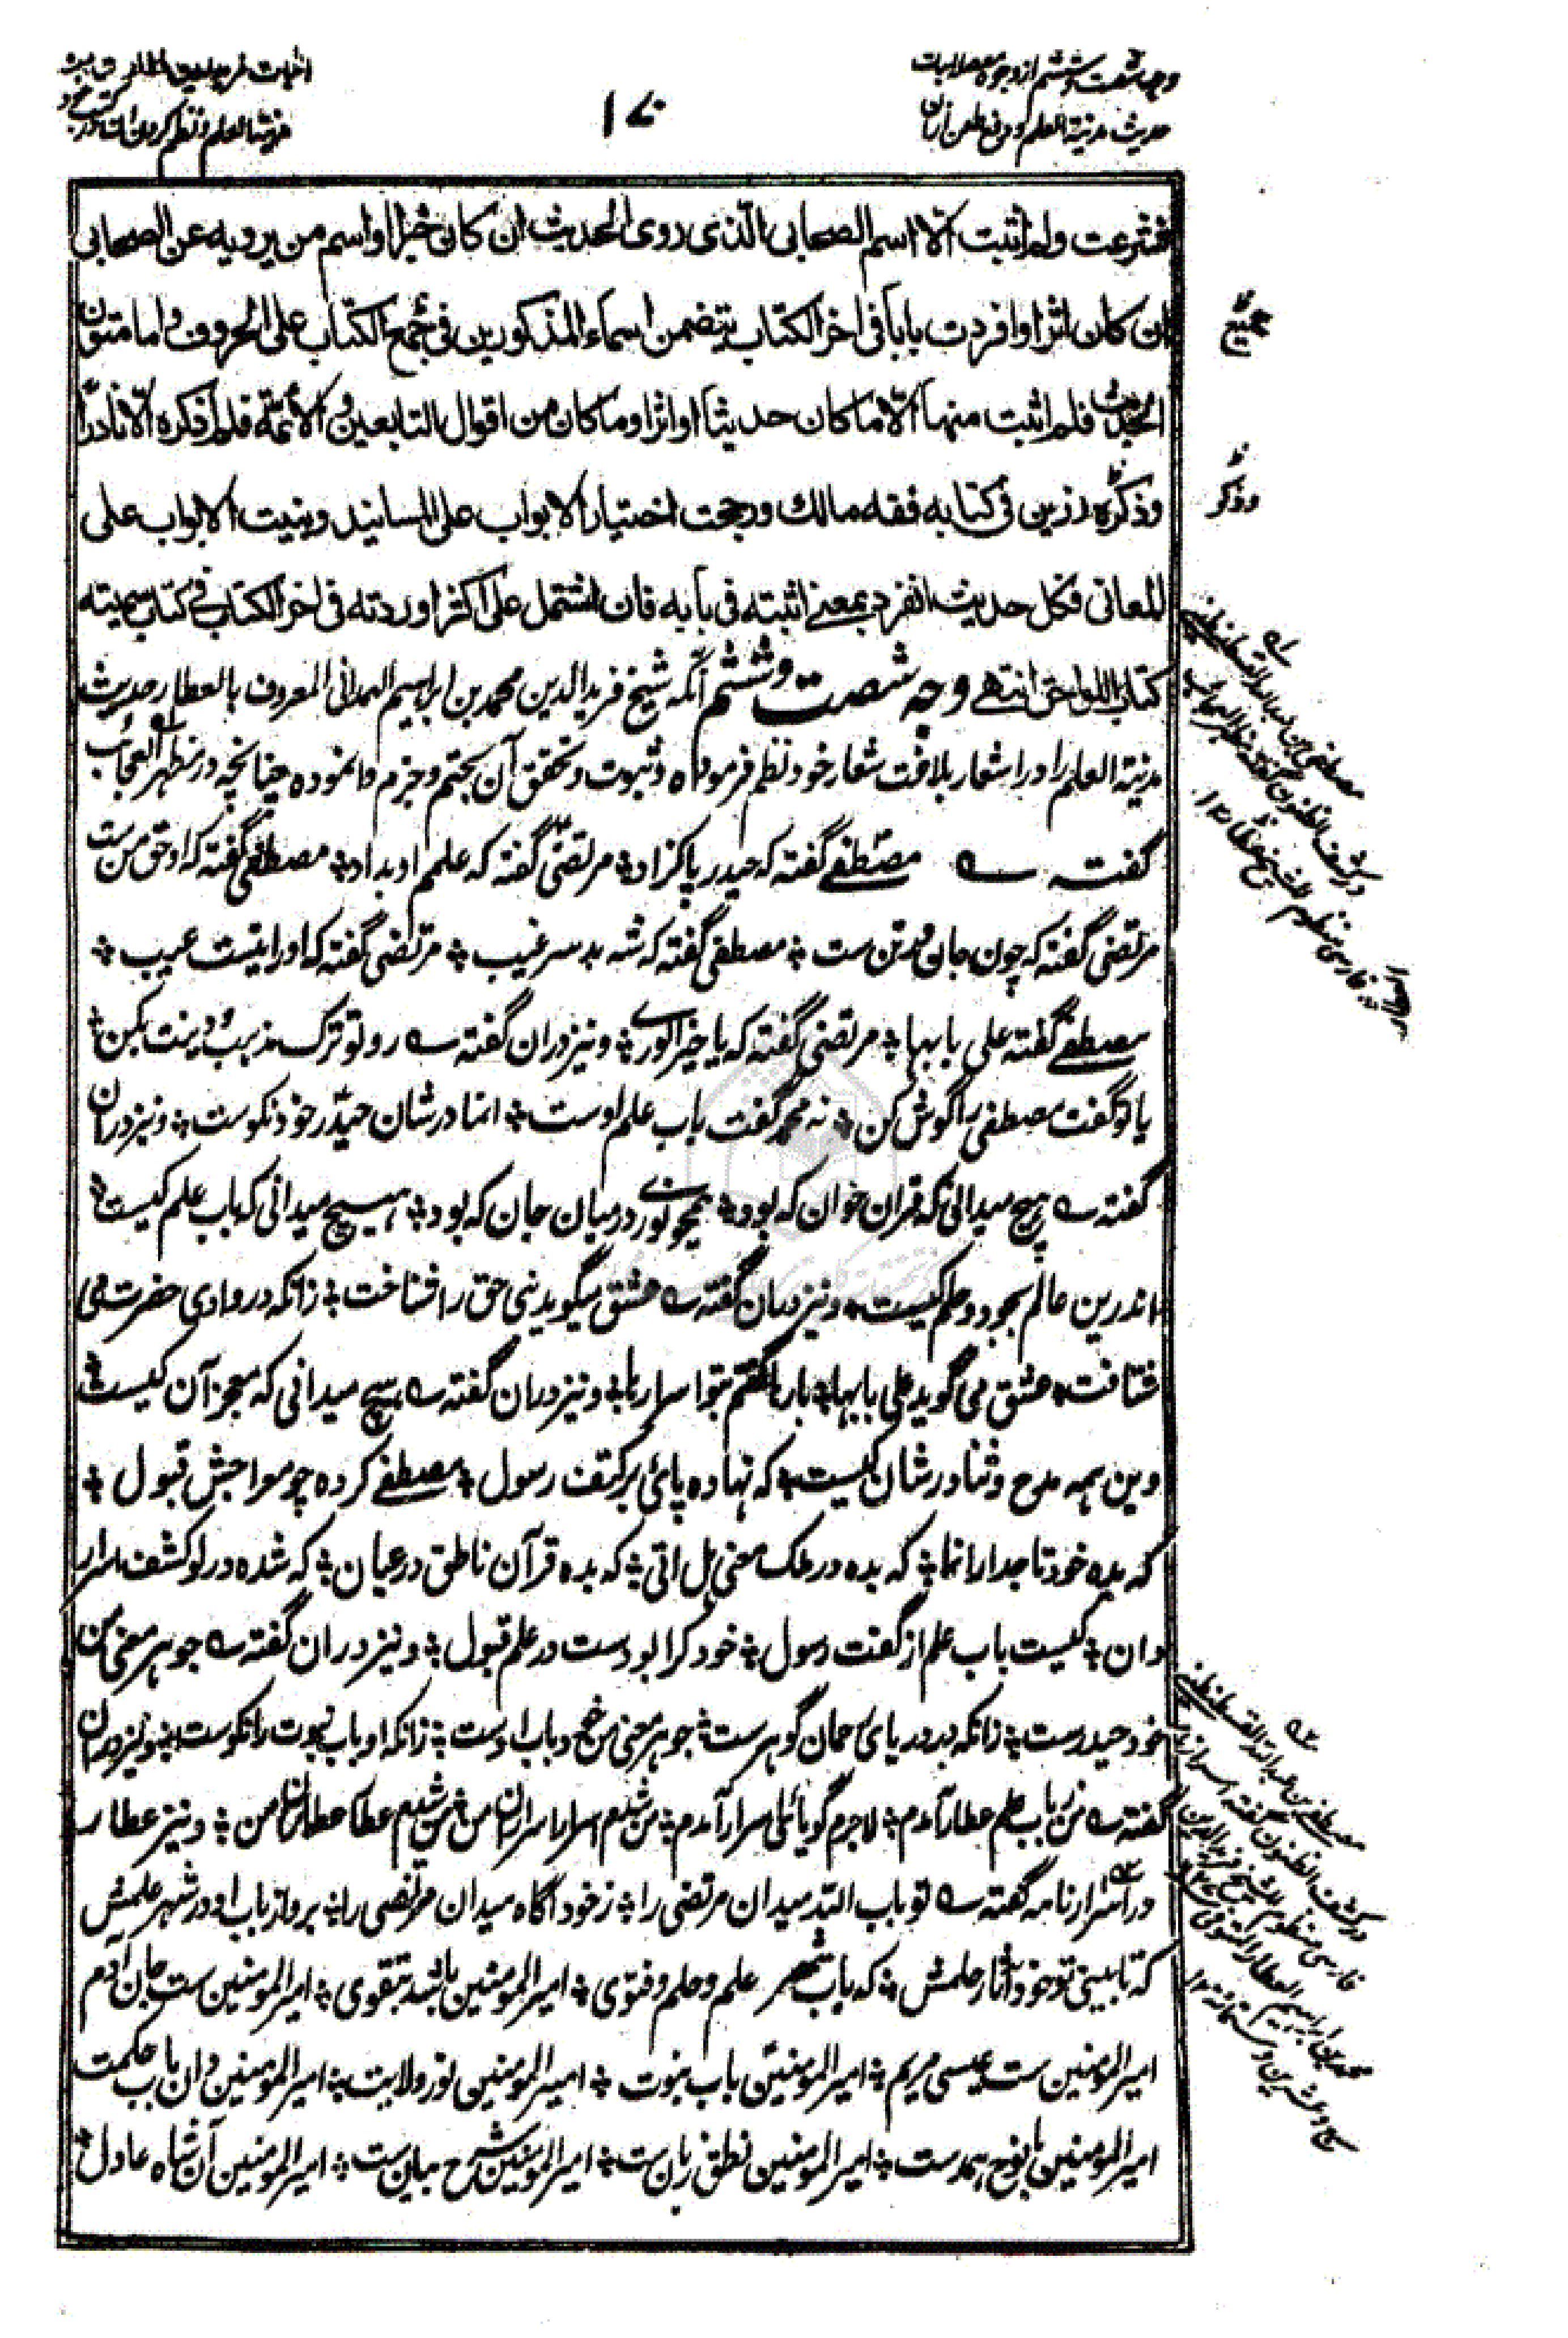 وجه شصت و ششم از وجوه
حدیث مدینة العلم و دفع طعن
۱۷۰
اثبات فرید الدین عطار
مدینة العلم و نظم کردن
فشرعت ولم اثبت الا اسم الصحابی الذی روی الحدیث ان کان خبرا او اسم من یرویه عن الصحابی
ان کان اثرا وافردت بابا فی اخر الکتاب یتضمن اسماء المذکورین فی جمیع الکتاب علی الحروف و اما متون
الحدیث فلم اثبت منها الا ما کان حدیثا او اثرا و ما کان من اقوال التابعین و الائمة فلم اذکره الا نادرا
وذکره رزین فی کتابه فقه مالک ورجحت اختیار الابواب علی المسانید وبنیت الابواب علی
المعانی فکل حدیث انفرد بمعنے اثبته فی بابه فان اشتمل علی اکثر اوردته فی اخر الکتاب فی کتاب سمیته
کتاب اللواحق انتهے وجه شصت و ششم آنکه شیخ فرید الدین محمد بن ابراهیم الهمدانی المعروف بالعطار حدیث
مدینة العلم را در اشعار بلاغت شعار خود نظم فرموده و ثبوت و تحقق آن بحتم و جزم وانموده چنانچه در مظهر العجائب
گفته مصطفے گفته که حیدر پاکزاد ؞ مرتضی گفته که علمم او بداد ؞ مصطفی گفته که او حق منست
مرتضی گفته که چون جان در تن ست ؞ مصطفی گفته که شه بد سر غیب ؞ مرتضی گفته که او را نیست عیب ؞
مصطفے گفته علی بابها ؞ مرتضی گفته که یا خیر الوری ؞ و نیز دران گفته رو تو ترک مذهب و دینت بکن ؞
یا تو گفت مصطفی را گوش کن ؞ نه محمد گفت باب علم اوست ؞ انما در شان حیدر خود نکوست ؞ و نیز دران
گفته هیچ میدانی که قرآن خوان که بود ؞ همچو نوری در میان جان که بود ؞ هیچ میدانی که باب علم کیست ؞
اندرین عالم بجود و حلم کیست ؞ و نیز دران گفته عشق میگوید نبی حق را شناخت ؞ زانکه در وادی حضرت می
شتافت ؞ عشق می گوید علی بابها ؞ بارها گفتم بتو اسرارها ؞ و نیز دران گفته هیچ میدانی که معجز آن کیست ؞
وین همه مدح و ثنا در شان کیست ؞ که نهاده پائی بر کتف رسول ؞ مصطفے کرده چو معراجش قبول ؞
که بده خود تاجدار انما ؞ که بده در ملک معنی هل اتی ؞ که بده قرآن ناطق در عیان ؞ که شده در لو کشف اسرار
دان ؞ کیست باب علم از گفت رسول ؞ خود کرا بودست در علم قبول ؞ و نیز دران گفته جوهر معنی من
خود حیدرست ؞ زانکه در دریای عمان گوهرست ؞ جوهر معنی من ز باب اوست ؞ زانکه او باب نبوت را نکوست ؞ و نیز دران
گفته من ز باب علم عطار آمدم ؞ لاجرم گویائی اسرار آمدم ؞ من شدم اسرار اسراران من ؞ من شدم عطار عطاران من ؞ و نیز عطار
در اسرار نامه گفته تو باب الله میدان مرتضی را ؞ ز خود آگاه میدان مرتضی را ؞ برو از باب او در شهر علمش
که تا بینی تو خود آثار حلمش ؞ که باب شهر علم و حلم و فتوی ؞ امیر المومنین باشد بتقوی ؞ امیر المومنین ست جان آدم
امیر المومنین ست عیسی مریم ؞ امیر المومنین باب نبوت ؞ امیر المومنین نور ولایت ؞ امیر المومنین دان باب حکمت
امیر المومنین با نوح همدست ؞ امیر المومنین نطق زبان ست ؞ امیر المومنین شرح بیان ست ؞ امیر المومنین آن شاه عادل ؞
جمیع
وذکر
مصطفی بن عبد الله القسطنطینی
در کشف الظنون گفته مظهر العجائب
فارسی منظوم للشیخ عطار ۱۲
مصطفی بن عبد الله القسطنطینی
در کشف الظنون گفته اسرار نامه
فارسی منظوم للشیخ فرید الدین
محمد بن ابراهیم العطار المتوفی
سبع و عشرین و ستمائة